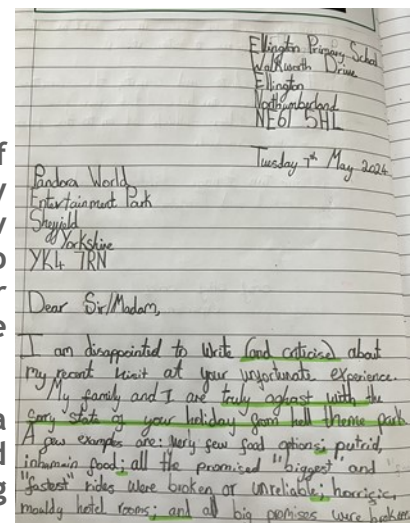 Ellington Primary School
Walkworth Drive
Ellington
Northumberland
NE61 5HL
Tuesday 7th May 2024
Pandora World
Entertainment Park
Sheffield
Yorkshire
YK4 7RN
Dear Sir/Madam,
I am disappointed to write (and criticise) about
my recent visit at your unfortunate experience.
My family and I are truly aghast with the
sorry state of your holiday from hell theme park.
A few examples are: very few food options; putrid,
inhumain food; all the promised "biggest" and
"fastest" rides were broken or unreliable; horrific,
mouldy hotel rooms; and all big promises were